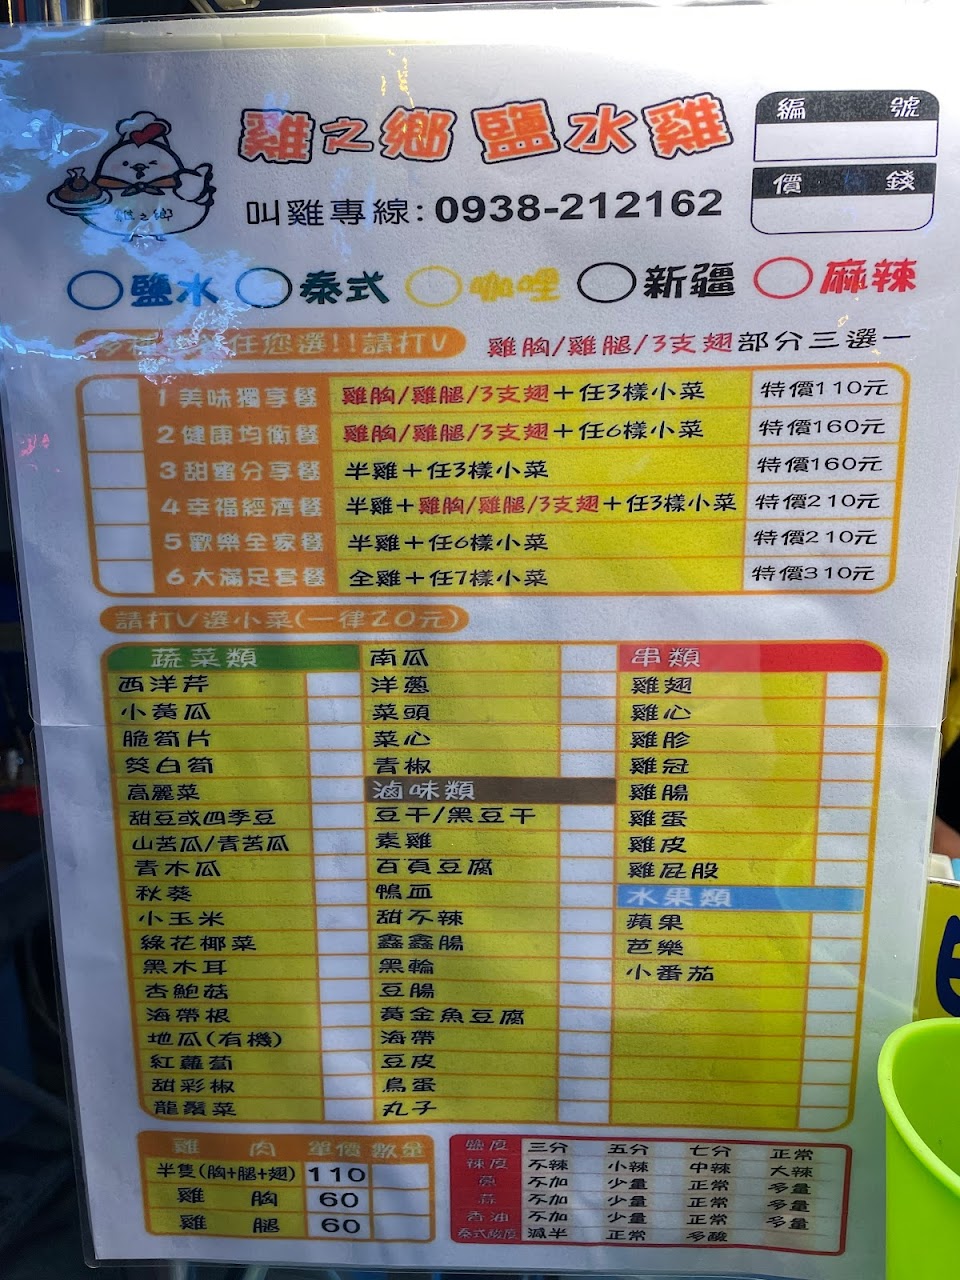 雞之鄉 鹽水雞
編 號
價 錢
雞之鄉
叫雞專線:0938-212162
鹽水 泰式 咖哩 新疆 麻辣
任您選!!請打V 雞胸/雞腿/3支翅部分三選一
1 美味獨享餐 雞胸/雞腿/3支翅+任3樣小菜 特價110元
2 健康均衡餐 雞胸/雞腿/3支翅+任6樣小菜 特價160元
3 甜蜜分享餐 半雞+任3樣小菜 特價160元
4 幸福經濟餐 半雞+雞胸/雞腿/3支翅+任3樣小菜 特價210元
5 歡樂全家餐 半雞+任6樣小菜 特價210元
6 大滿足套餐 全雞+任7樣小菜 特價310元
請打V選小菜(一律20元)
蔬菜類 南瓜 串類
西洋芹 洋蔥 雞翅
小黃瓜 菜頭 雞心
脆筍片 菜心 雞胗
筊白筍 青椒 雞冠
高麗菜 滷味類 雞腸
甜豆或四季豆 豆干/黑豆干 雞蛋
山苦瓜/青苦瓜 素雞 雞皮
青木瓜 百頁豆腐 雞屁股
秋葵 鴨血 水果類
小玉米 甜不辣 蘋果
綠花椰菜 鑫鑫腸 芭樂
黑木耳 黑輪 小番茄
杏鮑菇 豆腸
海帶根 黃金魚豆腐
地瓜(有機) 海帶
紅蘿蔔 豆皮
甜彩椒 鳥蛋
龍鬚菜 丸子
雞 肉 單價 數量
半隻(胸+腿+翅) 110
雞 胸 60
雞 腿 60
鹽度 三分 五分 七分 正常
辣度 不辣 小辣 中辣 大辣
蔥 不加 少量 正常 多量
蒜 不加 少量 正常 多量
香油 不加 少量 正常 多量
泰式酸度 減半 正常 多酸